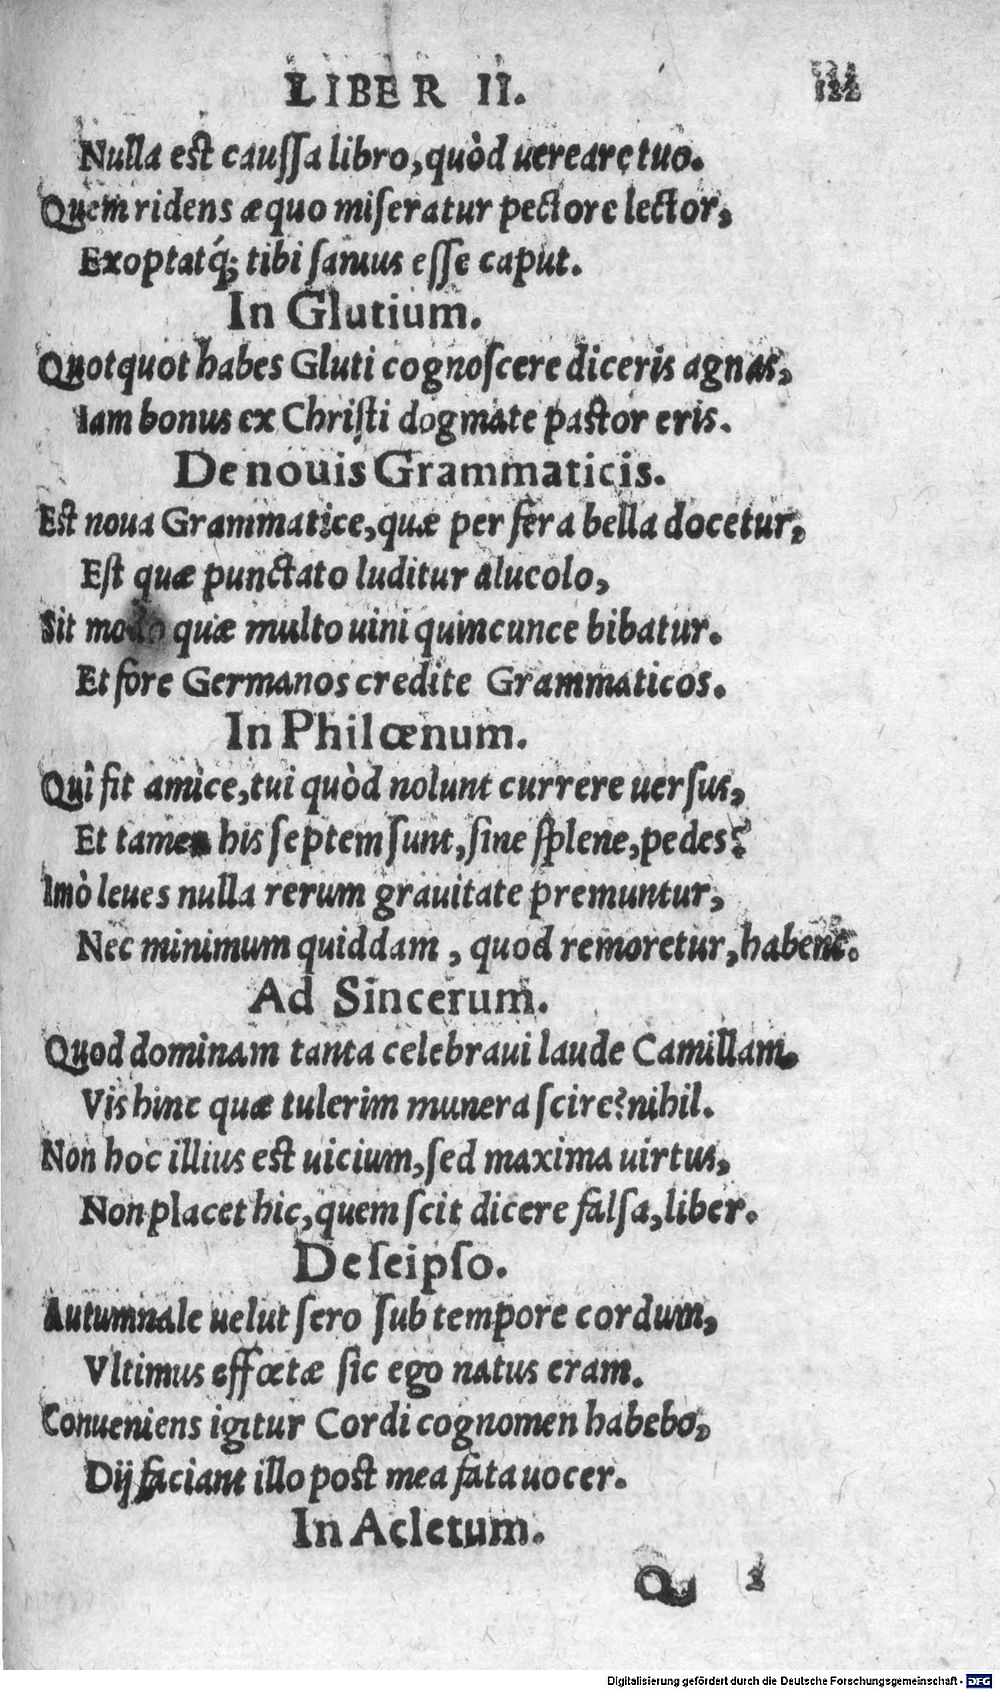 LIBER II.
Nulla est caussa libro, quòd uereare tuo.
Quem ridens æquo miseratur pectore lector,
Exoptatq́; tibi sanius esse caput.
In Glutium.
Quotquot habes Gluti cognoscere diceris agnas,
Iam bonus ex Christi dogmate pastor eris.
De nouis Grammaticis.
Est noua Grammatice, quæ per fera bella docetur,
Est quæ punctato luditur alueolo,
Sit modo quæ multo uini quincunce bibatur.
Et fore Germanos credite Grammaticos.
In Philœnum.
Quî fit amice, tui quòd nolunt currere uersus,
Et tamen his septem sunt, sine splene, pedes?
Imò leues nulla rerum grauitate premuntur,
Nec minimum quiddam, quod remoretur, habent.
Ad Sincerum.
Quod dominam tanta celebraui laude Camillam.
Vis hinc quæ tulerim munera scire? nihil.
Non hoc illius est uicium, sed maxima uirtus,
Non placet hic, quem scit dicere falsa, liber.
De seipso.
Autumnale uelut sero sub tempore cordum,
Vltimus effœtæ sic ego natus eram.
Conueniens igitur Cordi cognomen habebo,
Dij faciant illo post mea fata uocer.
In Acletum.
Q
Digitalisierung gefördert durch die Deutsche Forschungsgemeinschaft - DFG